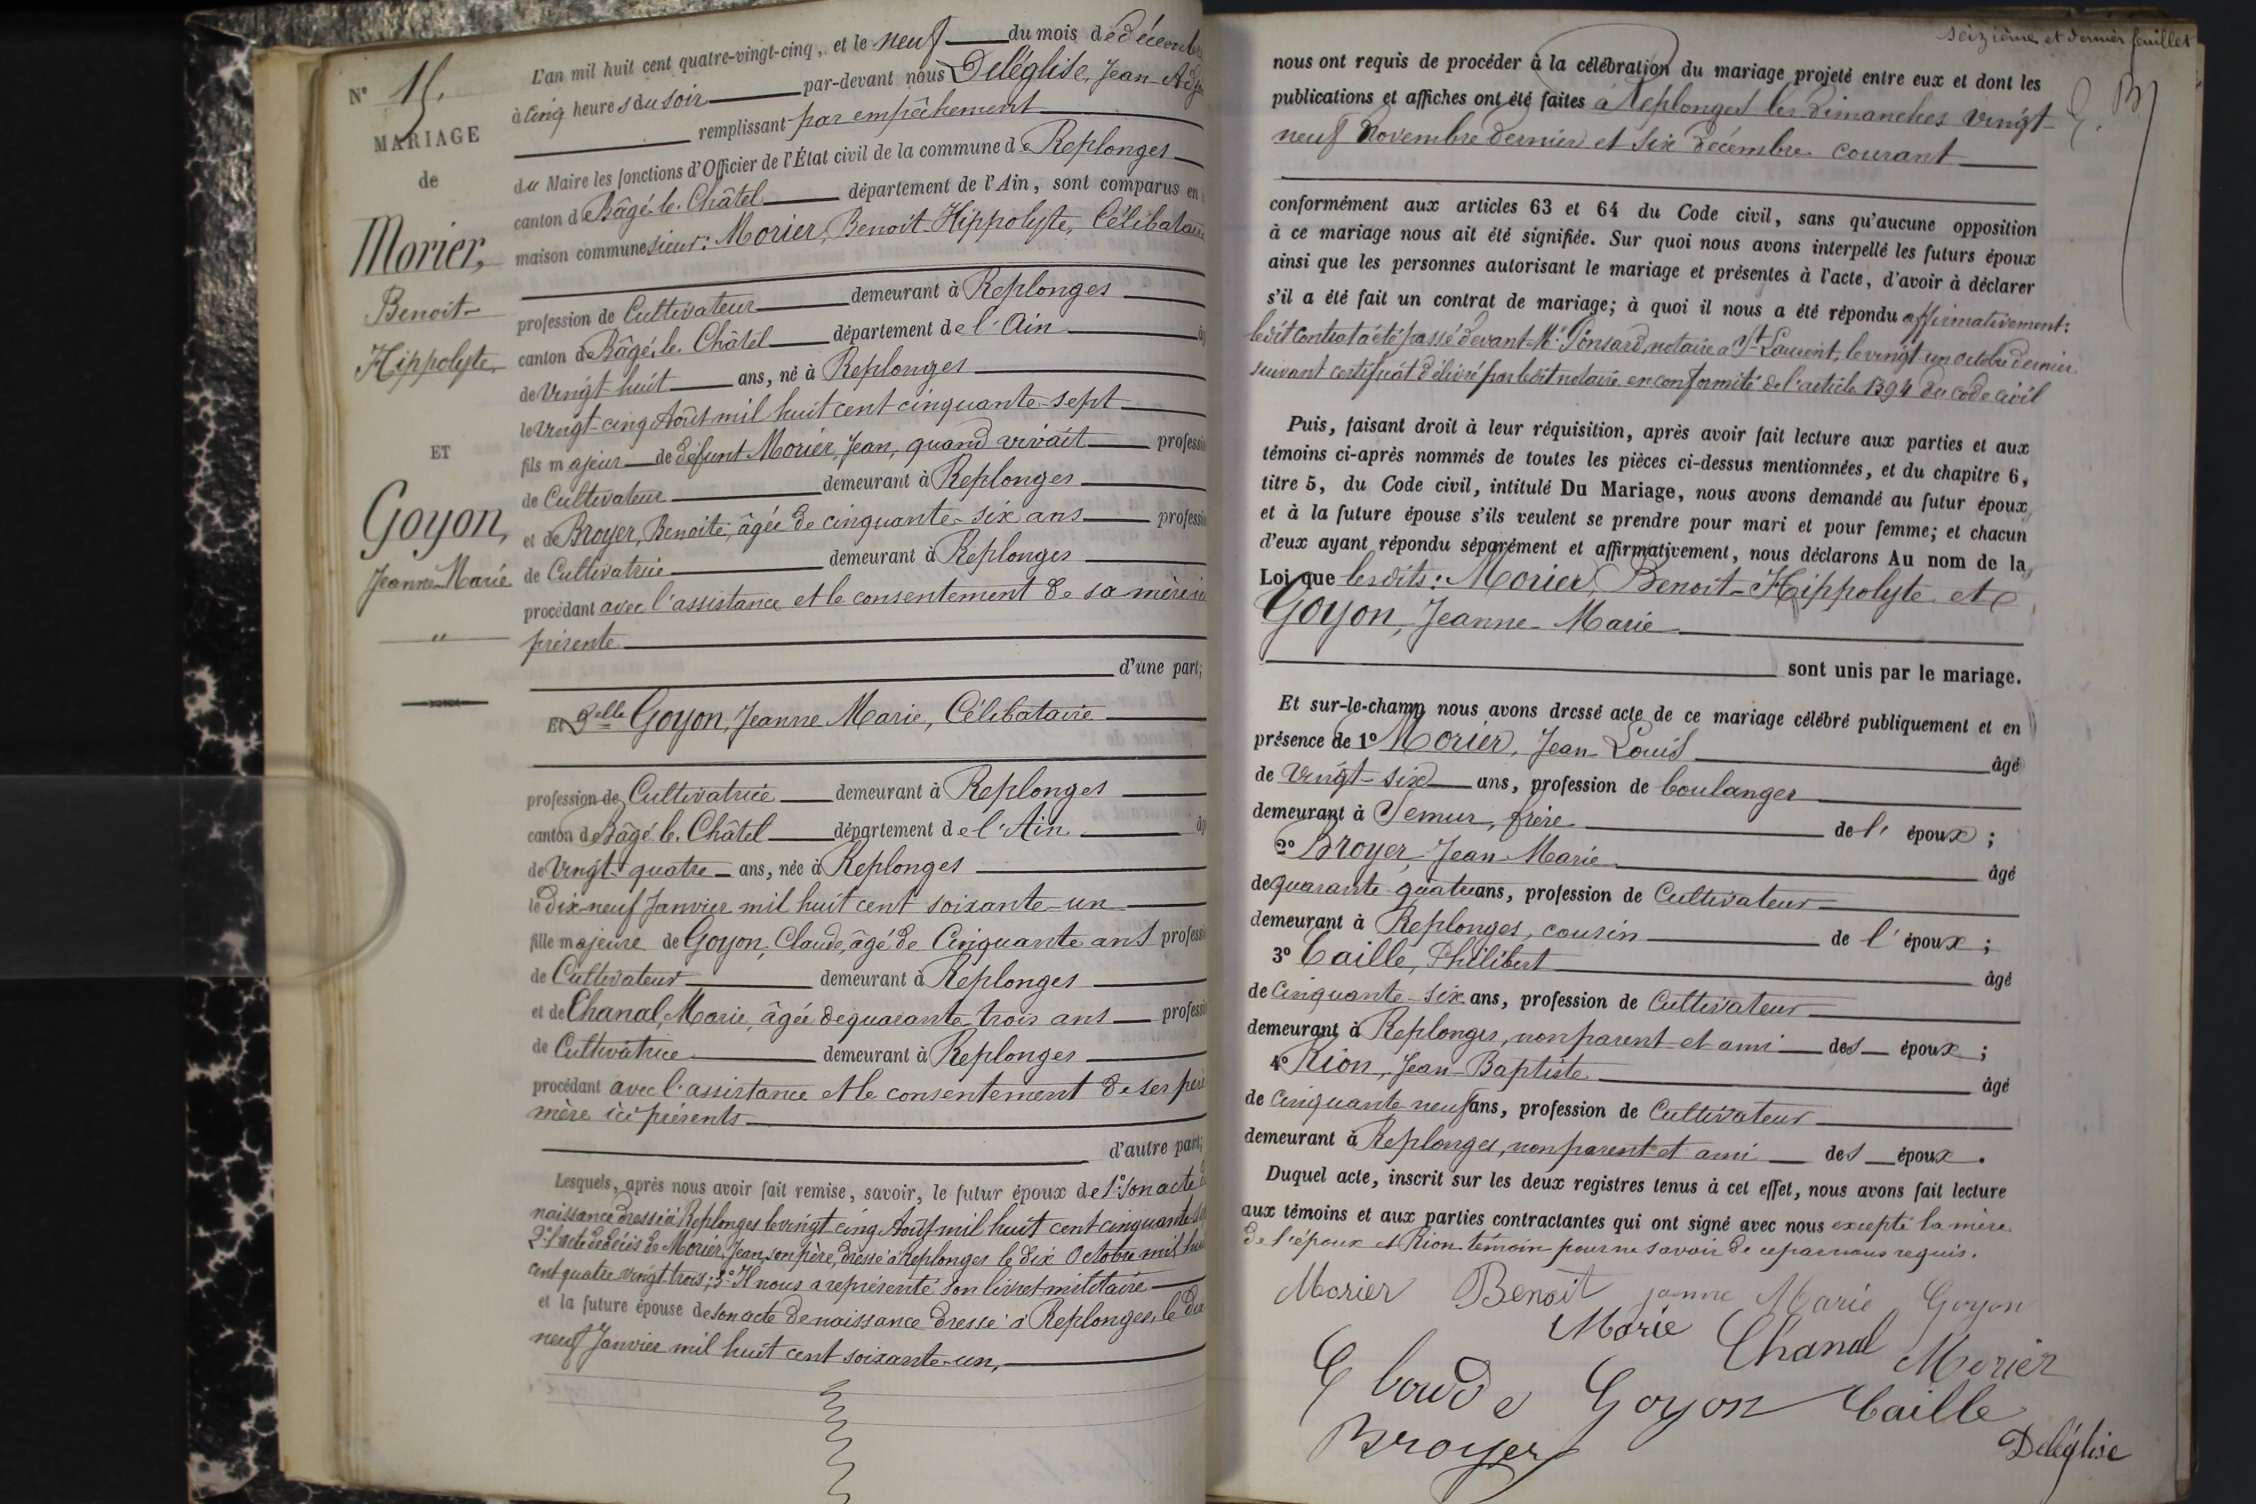 Nº 15.
MARIAGE
de
Morier,
Benoit-
Hippolyte,
ET
Goyon,
Jeanne-Marie
"
L'an mil huit cent quatre-vingt-cinq, et le neuf du mois de décembre
à cinq heures du soir par-devant nous Deléglise, Jean-
remplissant par empêchement
du Maire les fonctions d'Officier de l'État civil de la commune de Replonges
canton de Bâgé-le-Châtel département de l'Ain, sont comparus en
maison commune sieur: Morier, Benoit-Hippolyte, Célibataire
profession de Cultivateur demeurant à Replonges
canton de Bâgé-le-Châtel département de l'Ain
de vingt-huit ans, né à Replonges
le vingt-cinq Août mil huit cent cinquante-sept
fils majeur de défunt Morier, Jean, quand vivait professi
de Cultivateur demeurant à Replonges
et de Broyer, Benoite, âgée de cinquante-six ans professi
de Cultivatrice demeurant à Replonges
procédant avec l'assistance et le consentement de sa mère ici
présente
d'une part;
Et Delle Goyon, Jeanne Marie, Célibataire
profession de Cultivatrice demeurant à Replonges
canton de Bâgé-le-Châtel département de l'Ain
de vingt-quatre ans, née à Replonges
le dix-neuf Janvier mil huit cent soixante-un
fille majeure de Goyon, Claude, âgé de Cinquante ans professi
de Cultivateur demeurant à Replonges
et de Chanal, Marie, âgée de quarante-trois ans professi
de Cultivatrice demeurant à Replonges
procédant avec l'assistance et le consentement de ses père
mère ici présents
d'autre part;
Lesquels, après nous avoir fait remise, savoir, le futur époux de 1º son acte
naissance dressé à Replonges le vingt-cinq Août mil huit cent cinquante-
2º l'acte de décès de Morier, Jean, son père, dressé à Replonges le dix Octobre mil huit
cent quatre vingt trois; 3º Il nous a représenté son livret militaire
et la future épouse de son acte de naissance dressé à Replonges, le dix
neuf Janvier mil huit cent soixante-un,
seizième et dernier feuillet
nous ont requis de procéder à la célébration du mariage projeté entre eux et dont les
publications et affiches ont été faites à Replonges les dimanches vingt-
neuf Novembre dernier et six décembre courant
conformément aux articles 63 et 64 du Code civil, sans qu'aucune opposition
à ce mariage nous ait été signifiée. Sur quoi nous avons interpellé les futurs époux
ainsi que les personnes autorisant le mariage et présentes à l'acte, d'avoir à déclarer
s'il a été fait un contrat de mariage; à quoi il nous a été répondu affirmativement:
ledit contrat a été passé devant Me Ponsard, notaire à St-Laurent, le vingt-un octobre dernier
suivant certificat délivré par ledit notaire en conformité de l'article 1394 du code civil
Puis, faisant droit à leur réquisition, après avoir fait lecture aux parties et aux
témoins ci-après nommés de toutes les pièces ci-dessus mentionnées, et du chapitre 6,
titre 5, du Code civil, intitulé Du Mariage, nous avons demandé au futur époux
et à la future épouse s'ils veulent se prendre pour mari et pour femme; et chacun
d'eux ayant répondu séparément et affirmativement, nous déclarons Au nom de la
Loi que lesdits: Morier, Benoit-Hippolyte et
Goyon, Jeanne-Marie
sont unis par le mariage.
Et sur-le-champ nous avons dressé acte de ce mariage célébré publiquement et en
présence de 1º Morier, Jean-Louis âgé
de vingt-six ans, profession de boulanger
demeurant à Semur, frère de l'époux;
2º Broyer, Jean-Marie âgé
de quarante quatre ans, profession de Cultivateur
demeurant à Replonges, cousin de l'époux;
3º Caille, Philibert âgé
de cinquante-six ans, profession de Cultivateur
demeurant à Replonges, non parent et ami des époux;
4º Rion, Jean-Baptiste âgé
de cinquante neuf ans, profession de Cultivateur
demeurant à Replonges, non parent et ami des époux.
Duquel acte, inscrit sur les deux registres tenus à cet effet, nous avons fait lecture
aux témoins et aux parties contractantes qui ont signé avec nous excepté la mère
de l'époux et Rion témoin pour ne savoir de ce par nous requis.
Morier Benoit janne Marie Goyon
Marie Chanal Morier
Claude Goyon Caille
Broyer Deléglise